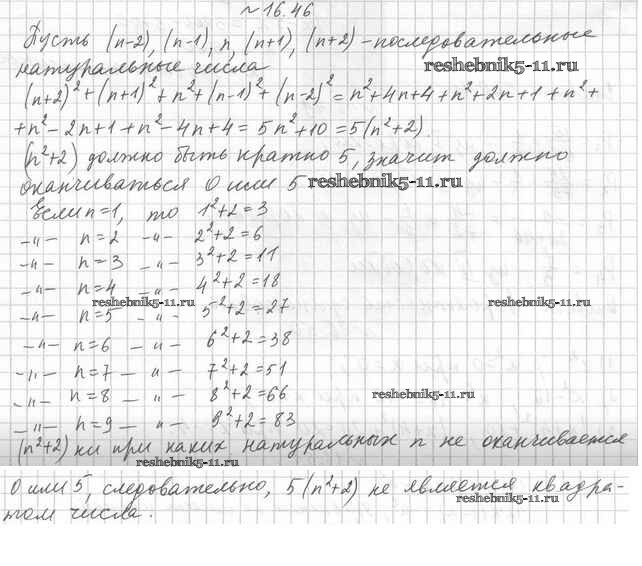 ~16.46
Пусть (n-2), (n-1), n, (n+1), (n+2) - последовательные
натуральные числа
reshebnik5-11.ru
(n+2)²+(n+1)²+n²+(n-1)²+(n-2)²=n²+4n+4+n²+2n+1+n²+
+n²-2n+1+n²-4n+4=5n²+10=5(n²+2)
(n²+2) должно быть кратно 5, значит должно
оканчиваться 0 или 5 reshebnik5-11.ru
Если n=1, то 1²+2=3
-"- n=2 -"- 2²+2=6
-"- n=3 -"- 3²+2=11
-"- n=4 -"- 4²+2=18
reshebnik5-11.ru reshebnik5-11.ru
-"- n=5 -"- 5²+2=27
-"- n=6 -"- 6²+2=38
-"- n=7 -"- 7²+2=51
-"- n=8 -"- 8²+2=66
reshebnik5-11.ru
-"- n=9 -"- 9²+2=83
(n²+2) ни при каких натуральных n не оканчивается
reshebnik5-11.ru
0 или 5, следовательно, 5(n²+2) не является квадра-
reshebnik5-11.ru
том числа.